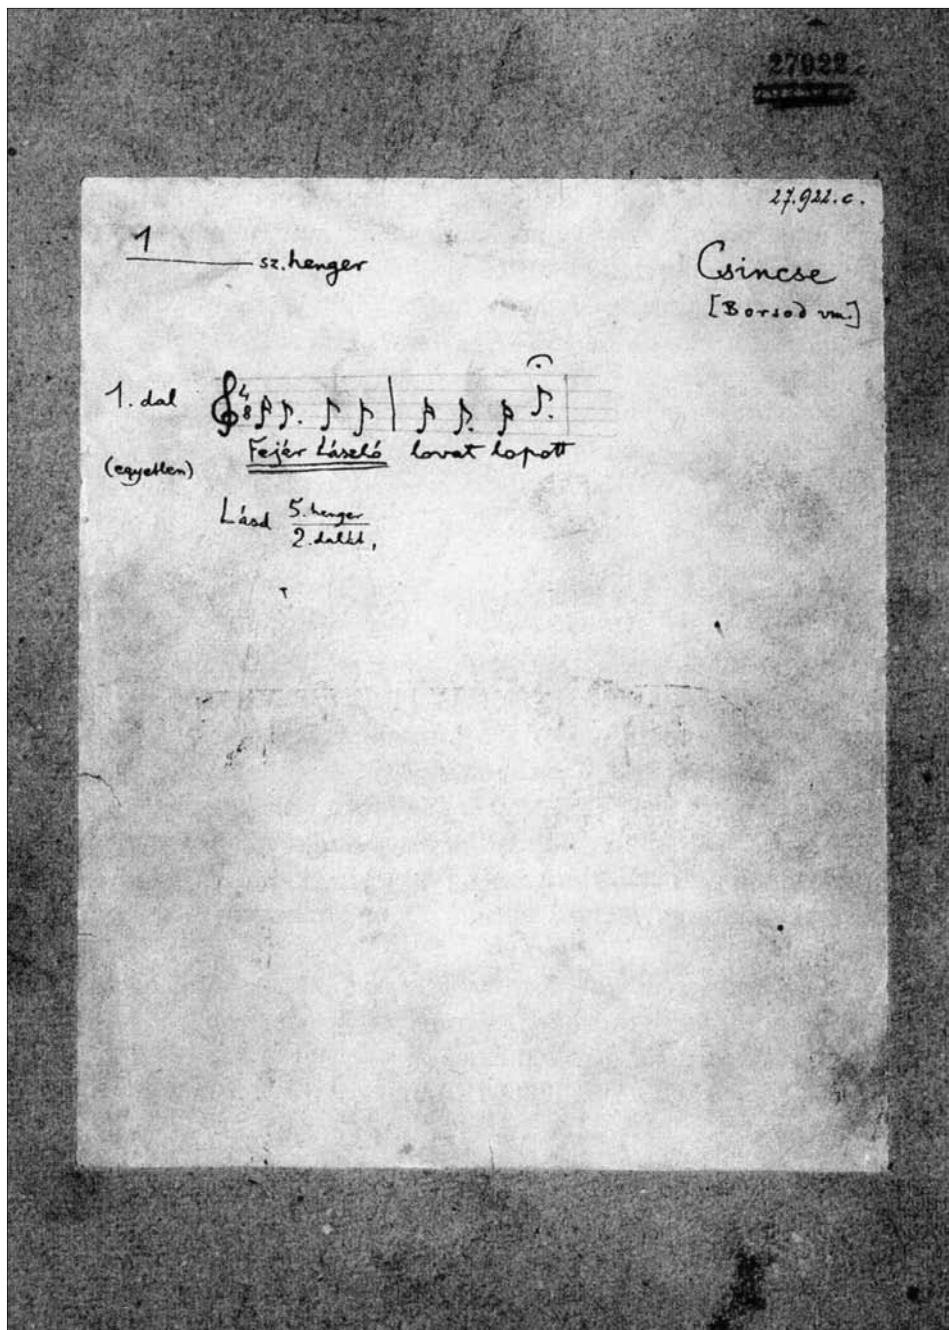 27922
27.922.c.
1 sz. henger
Csincse
[Borsod vm.]
1. dal
4
8
Fejér László lovat lopott
(egyetlen)
Lásd 5. henger
2. dalát,